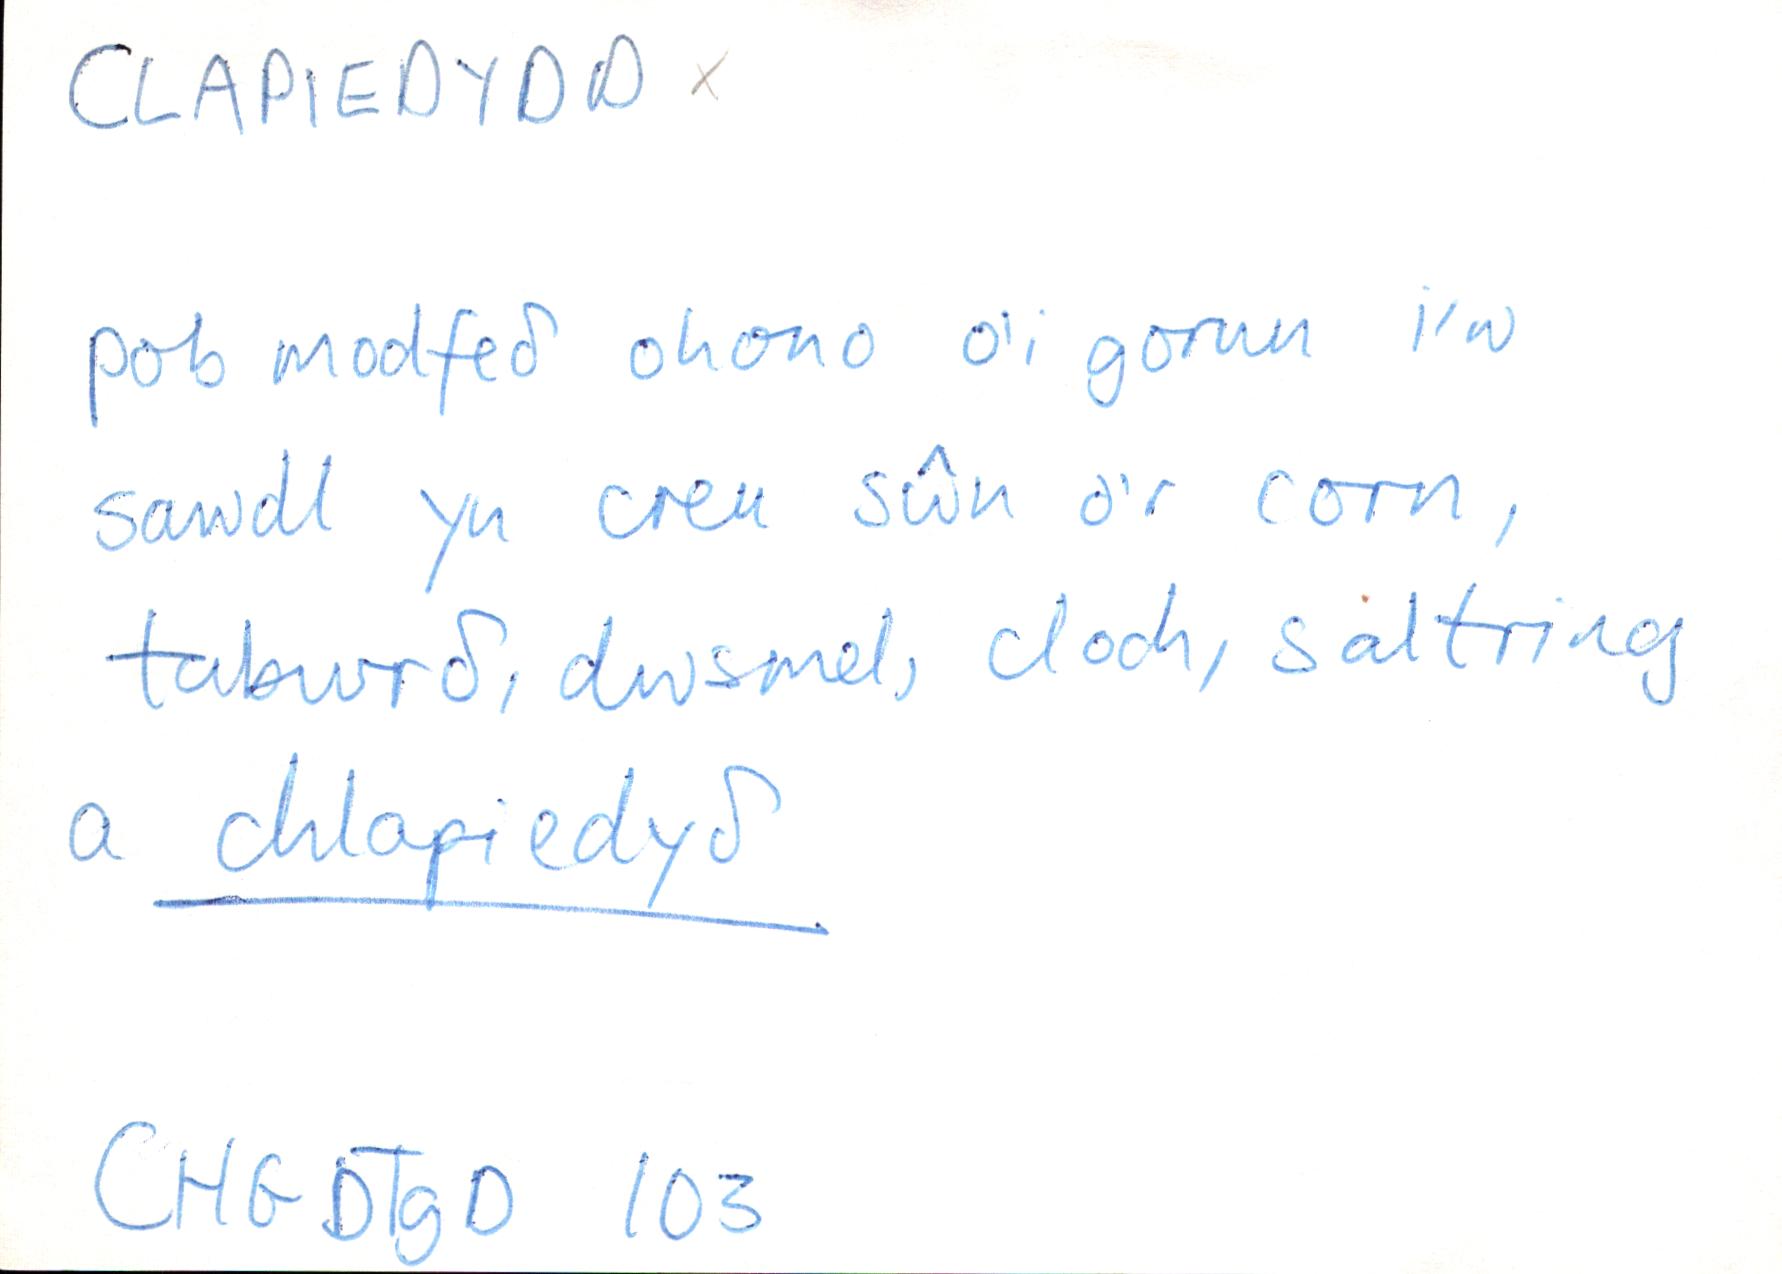 CLAPIEDYDD x
pob modfeδ ohono o'i gorun i'w
sawdl yn creu sŵn o'r corn,
tabwrδ, dwsmel, cloch, saltring
a chlapiedyδ
CHGDTgD 103